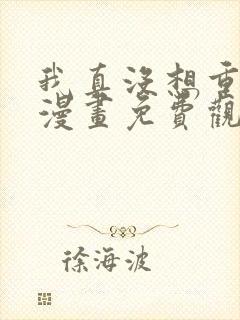 我真沒想重
漫畫免費觀
徐海波